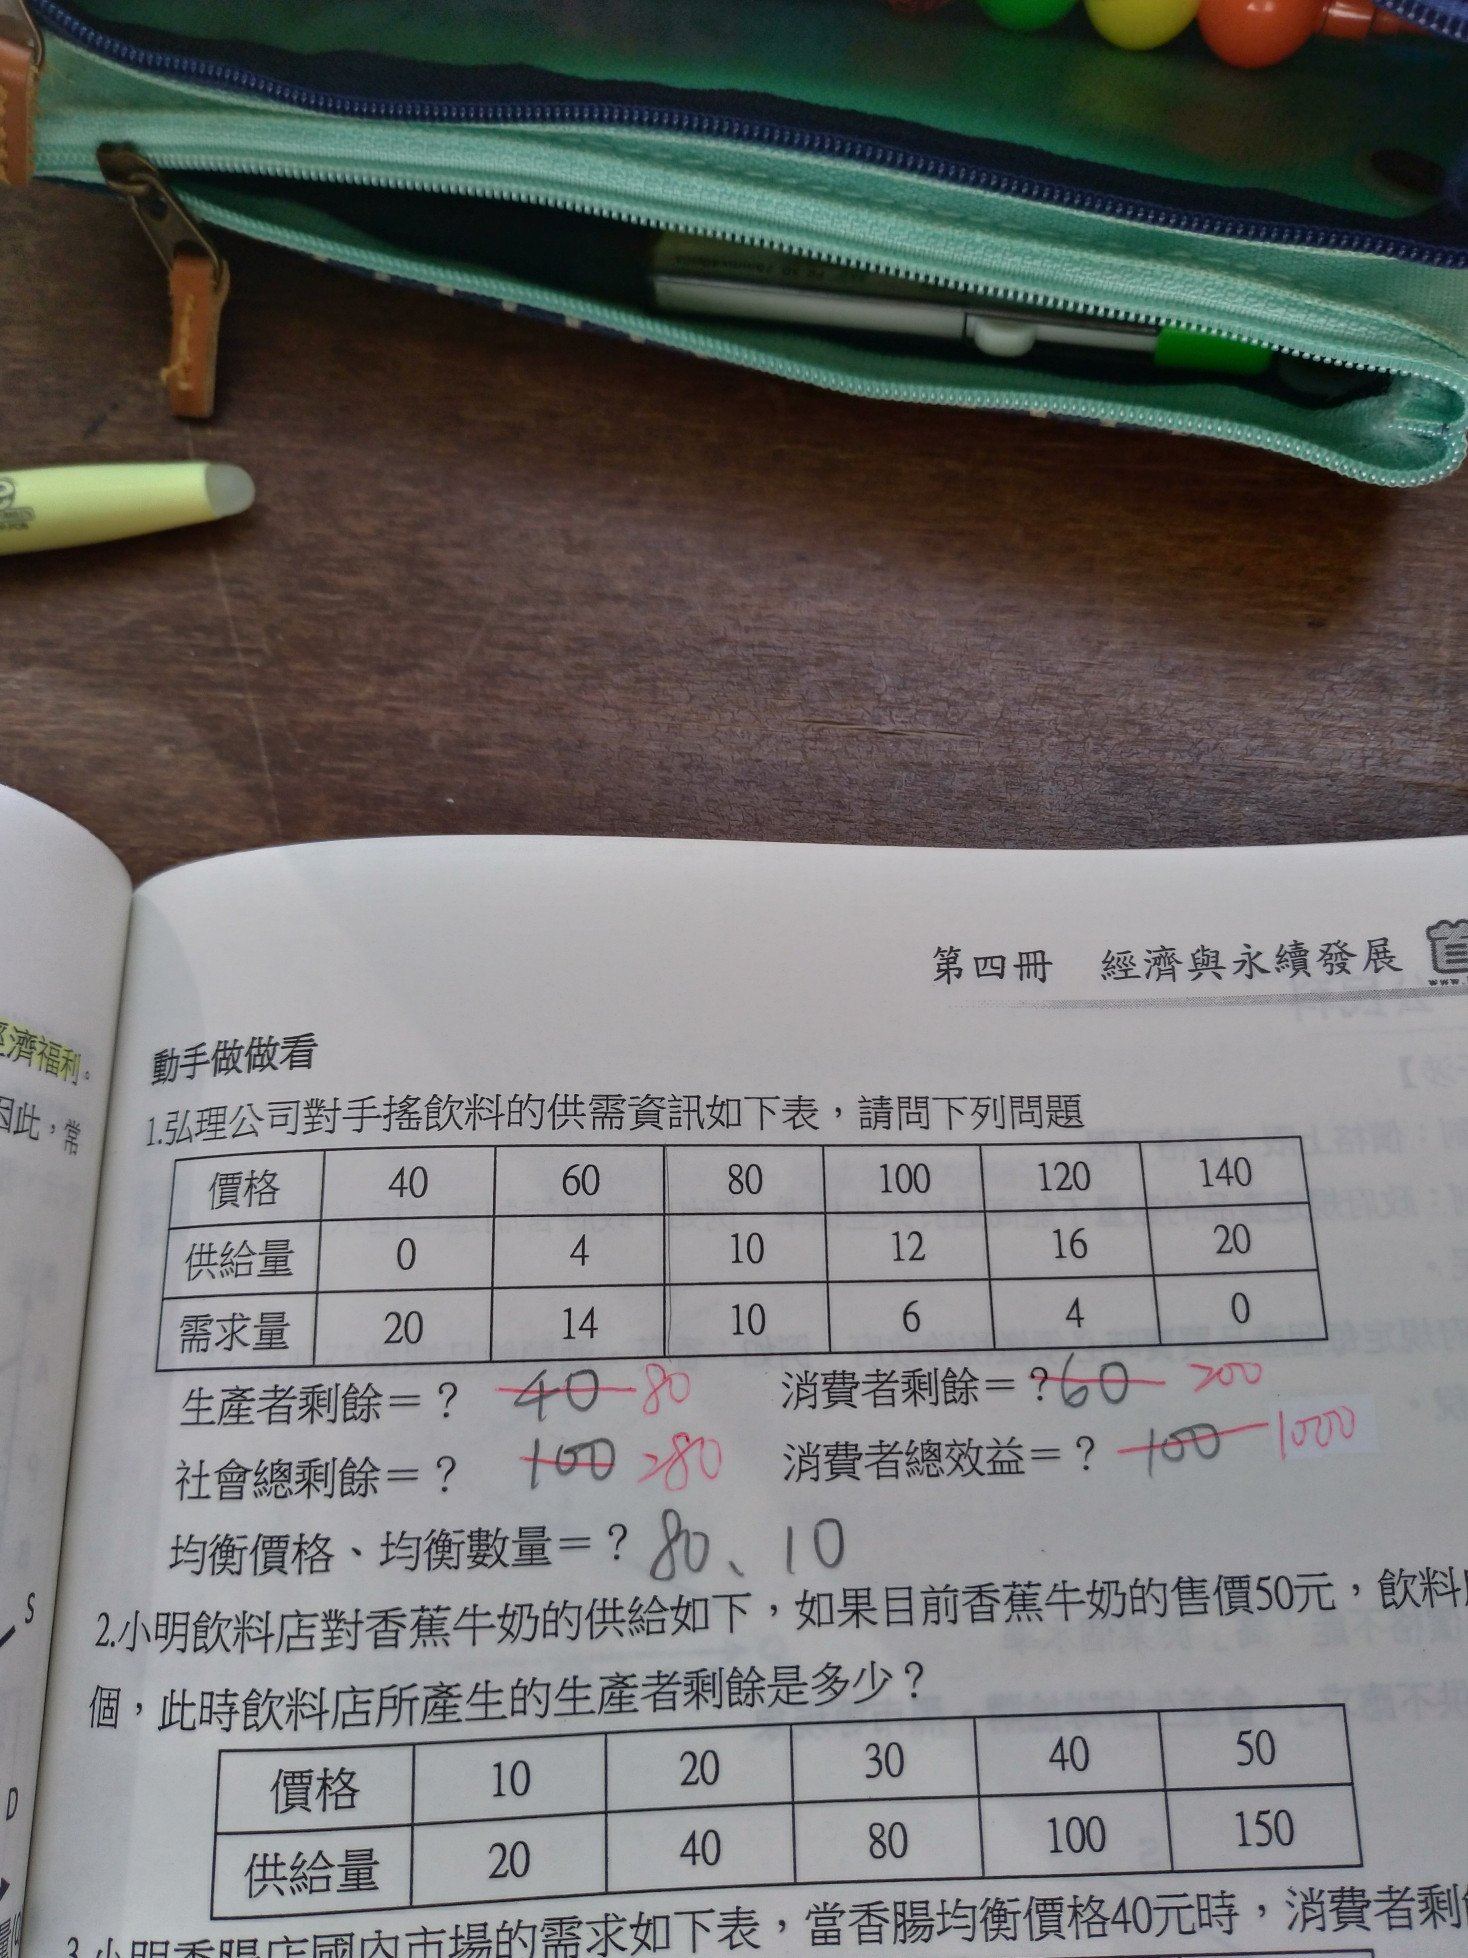 第四冊 經濟與永續發展
經濟福利。
因此，常
動手做做看
1.弘理公司對手搖飲料的供需資訊如下表，請問下列問題
價格 40 60 80 100 120 140
供給量 0 4 10 12 16 20
需求量 20 14 10 6 4 0
生產者剩餘＝？ 40 80 消費者剩餘＝？60 200
社會總剩餘＝？ 100 280 消費者總效益＝？ 100 1000
均衡價格、均衡數量＝？80、10
S
2.小明飲料店對香蕉牛奶的供給如下，如果目前香蕉牛奶的售價50元，飲料
個，此時飲料店所產生的生產者剩餘是多少？
D
價格 10 20 30 40 50
供給量 20 40 80 100 150
3.小明香腸店國內市場的需求如下表，當香腸均衡價格40元時，消費者剩